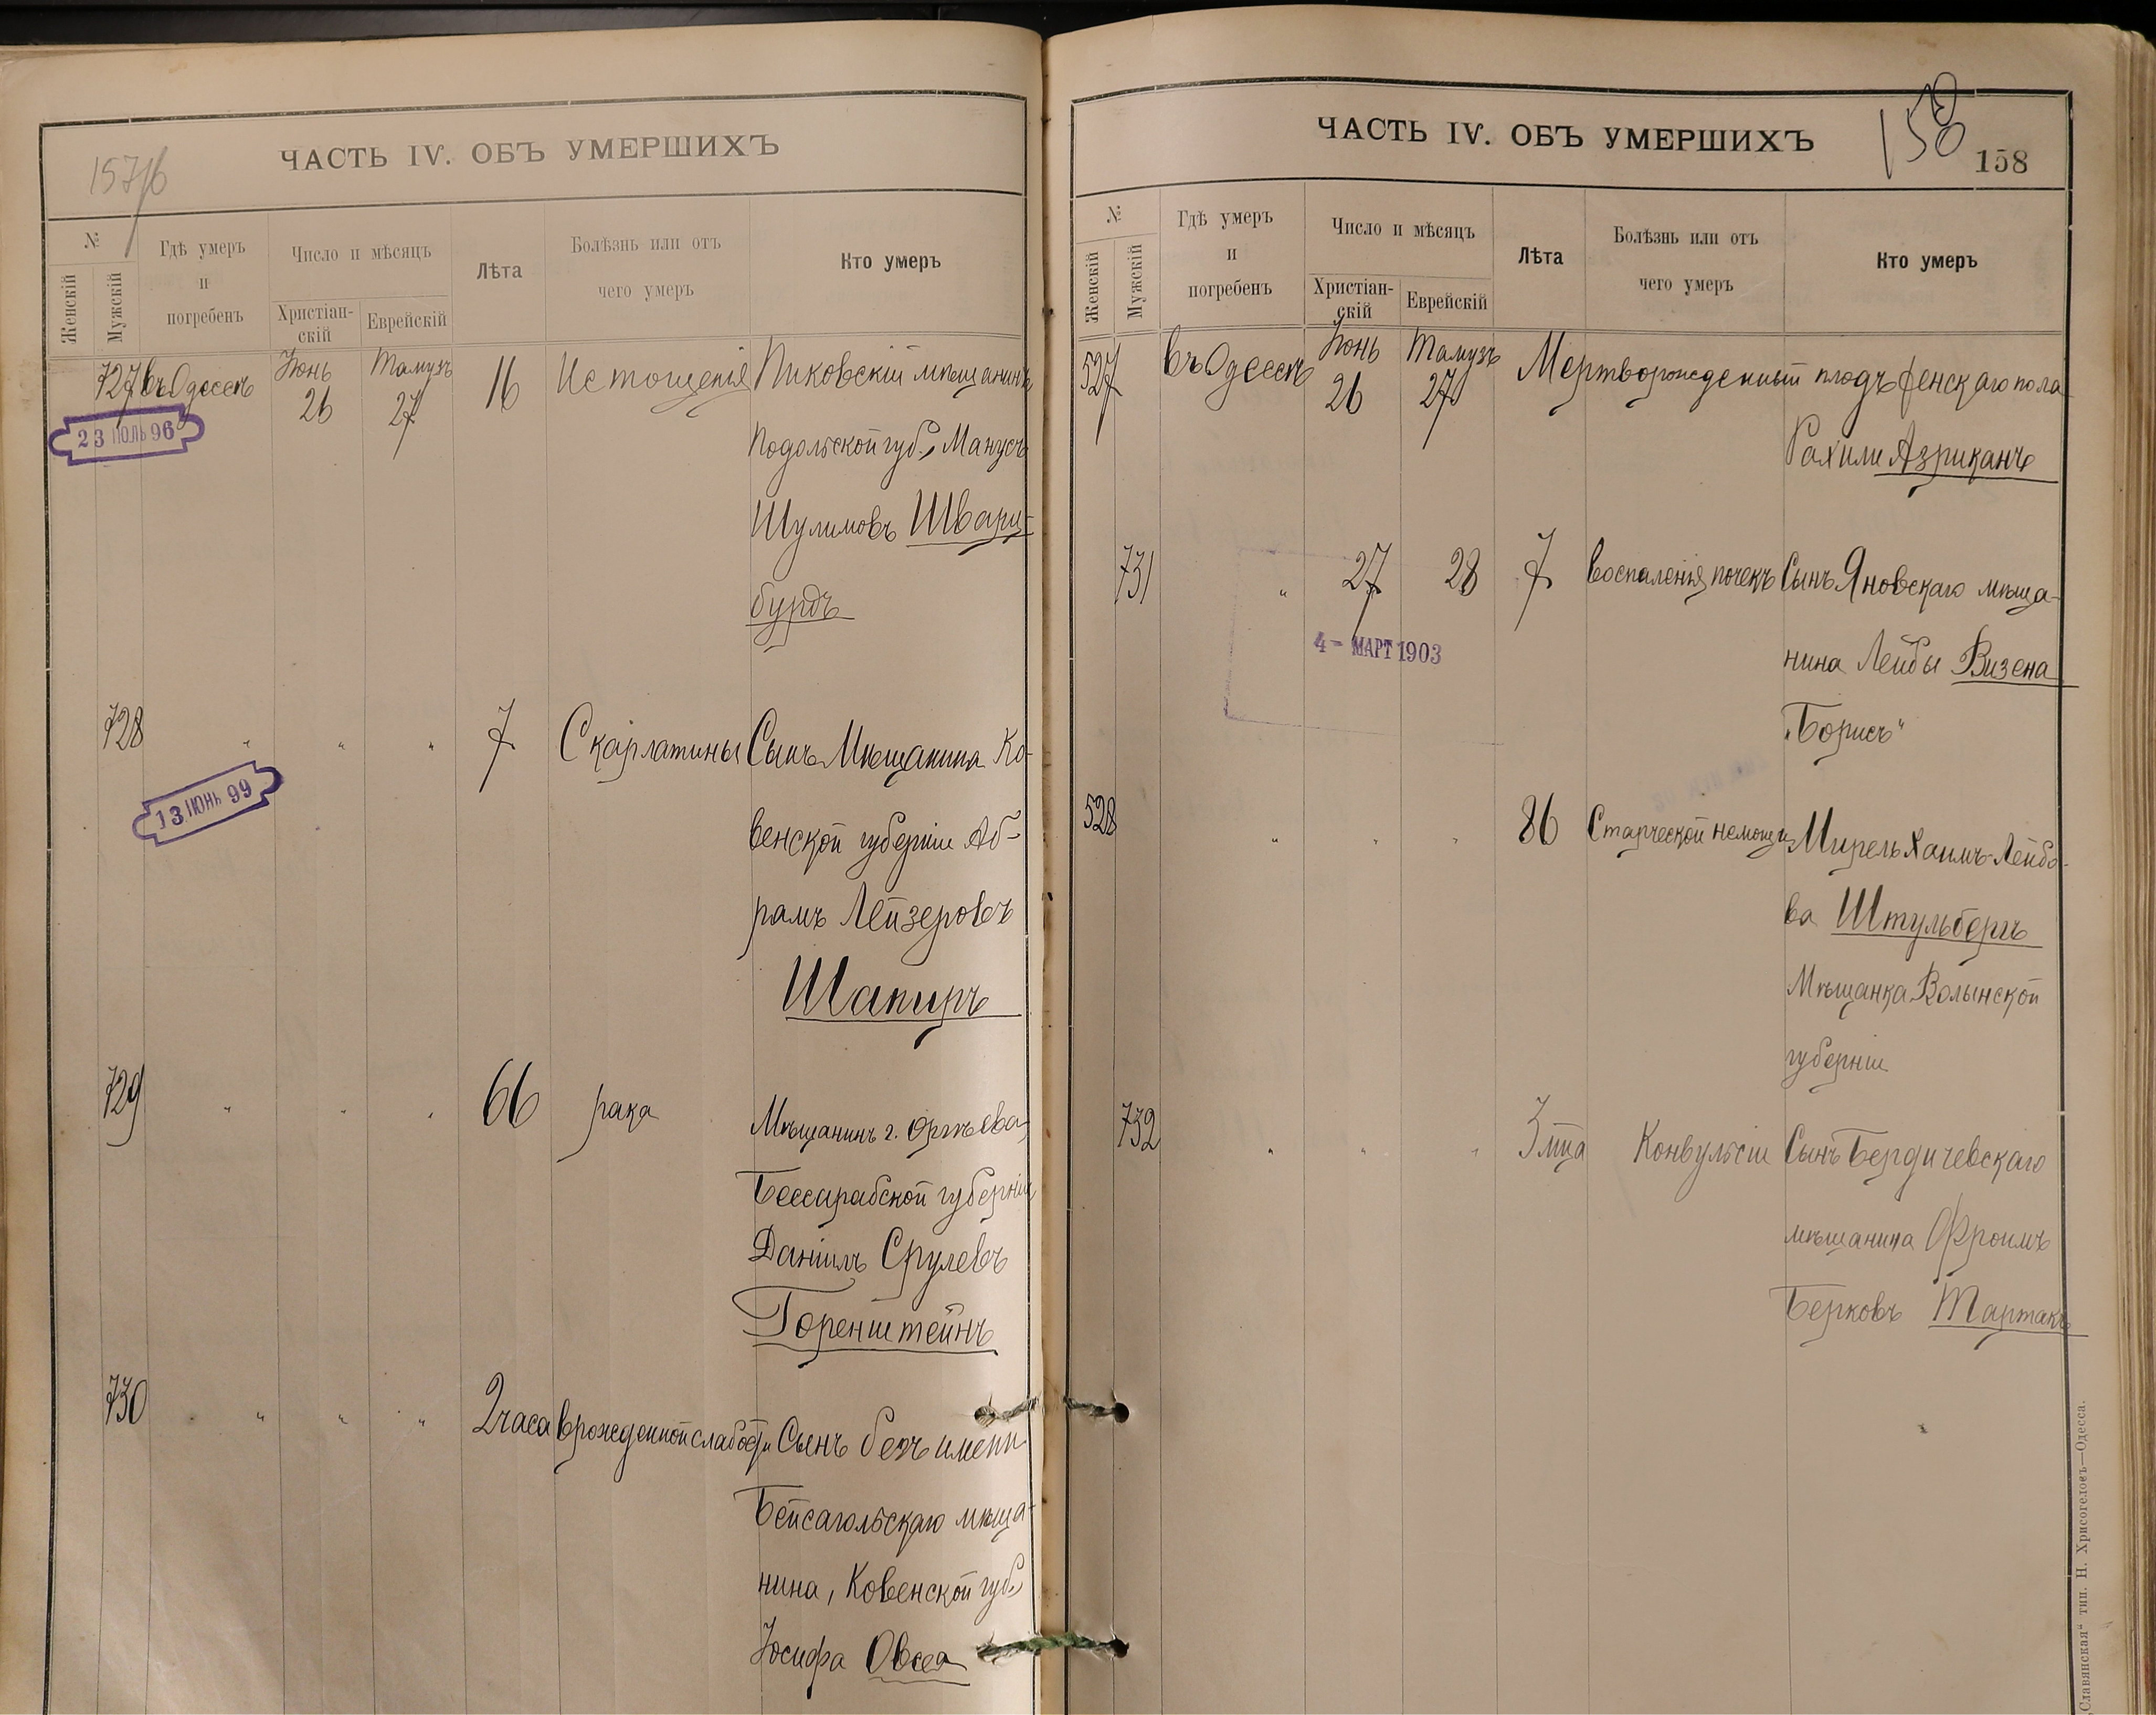 157/б
ЧАСТЬ IV. ОБЪ УМЕРШИХЪ
№
Женскій
Мужскій
Гдѣ умеръ
и
погребенъ
Число и мѣсяцъ
Христіан-
скій
Еврейскій
Лѣта
Болѣзнь или отъ
чего умеръ
Кто умеръ
727 въ Одессѣ Іюнь 26 Тамузъ 27 16 Истощенія Пиковскій мѣщанинъ
Подольской губ., Манусъ
Шулимовъ Шварц-
бурдъ
23 ІЮЛЬ 96
728 " " " 7 Скарлатины Сынъ Мѣщанина Ко-
венской губерніи Аб-
рамъ Лейзеровъ
Шапиръ
13 ІЮНЬ 99
729 " " " 66 рака Мѣщанинъ г. Оргѣева,
Бессарабской губерніи
Даніилъ Срулевъ
Горенштейнъ
730 " " " 2 часа врожденной слабости Сынъ безъ имени
Бейсагольскаго мѣща-
нина, Ковенской губ.,
Іосифа Овсея
ЧАСТЬ IV. ОБЪ УМЕРШИХЪ
158
158
№
Женскій
Мужскій
Гдѣ умеръ
и
погребенъ
Число и мѣсяцъ
Христіан-
скій
Еврейскій
Лѣта
Болѣзнь или отъ
чего умеръ
Кто умеръ
527 въ Одессѣ Іюнь 26 Тамузъ 27 Мертворожденный плодъ женскаго пола
Рахили Азриканъ
731 " 27 28 7 воспаленія почекъ Сынъ Яновскаго мѣща-
нина Лейбы Визена
„Борисъ"
4 - МАРТ 1903
528 " " " 86 Старческой немощи Мирель Хаимъ-Лейбо-
ва Штульбергъ
Мѣщанка Волынской
губерніи
732 " " " 3 мца Конвульсіи Сынъ Бердичевскаго
мѣщанина Фроимъ
Берковъ Тартакъ
„Славянская" тип. Н. Хрисогелосъ—Одесса.